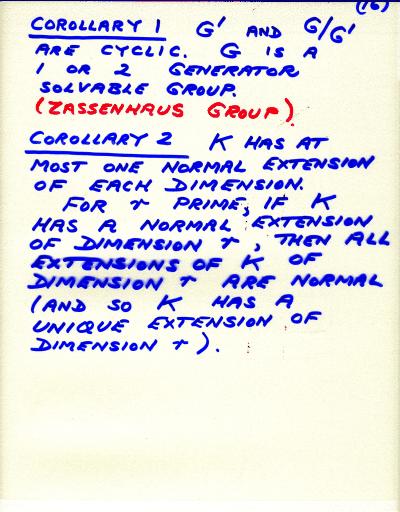 (16)
COROLLARY 1 G' AND G/G'
ARE CYCLIC. G IS A
1 OR 2 GENERATOR
SOLVABLE GROUP.
(ZASSENHAUS GROUP)
COROLLARY 2 K HAS AT
MOST ONE NORMAL EXTENSION
OF EACH DIMENSION.
FOR r PRIME, IF K
HAS A NORMAL EXTENSION
OF DIMENSION r, THEN ALL
EXTENSIONS OF K OF
DIMENSION r ARE NORMAL
(AND SO K HAS A
UNIQUE EXTENSION OF
DIMENSION r).